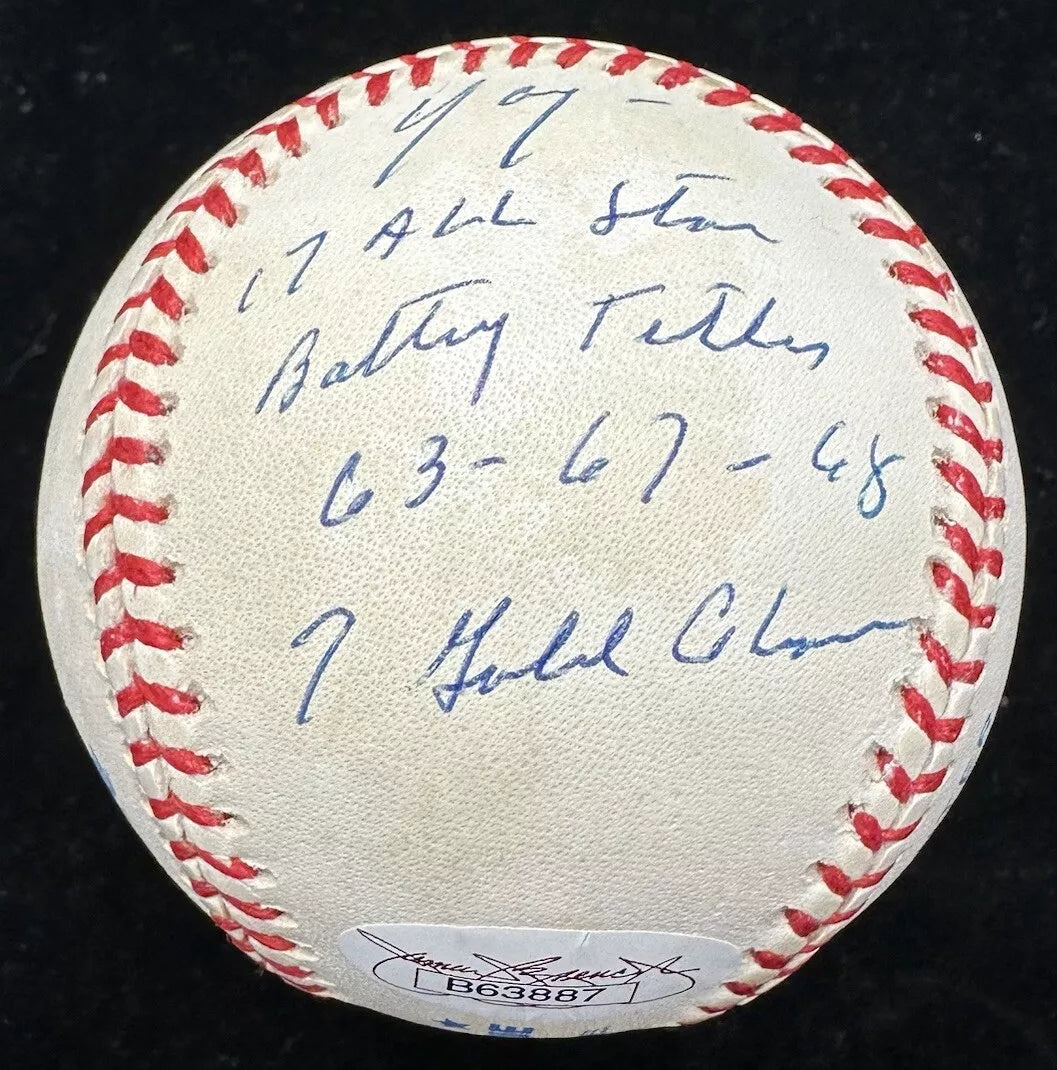 Yaz -
17 All Star
Batting Titles
63-67-68
7 Gold Glove
B63887